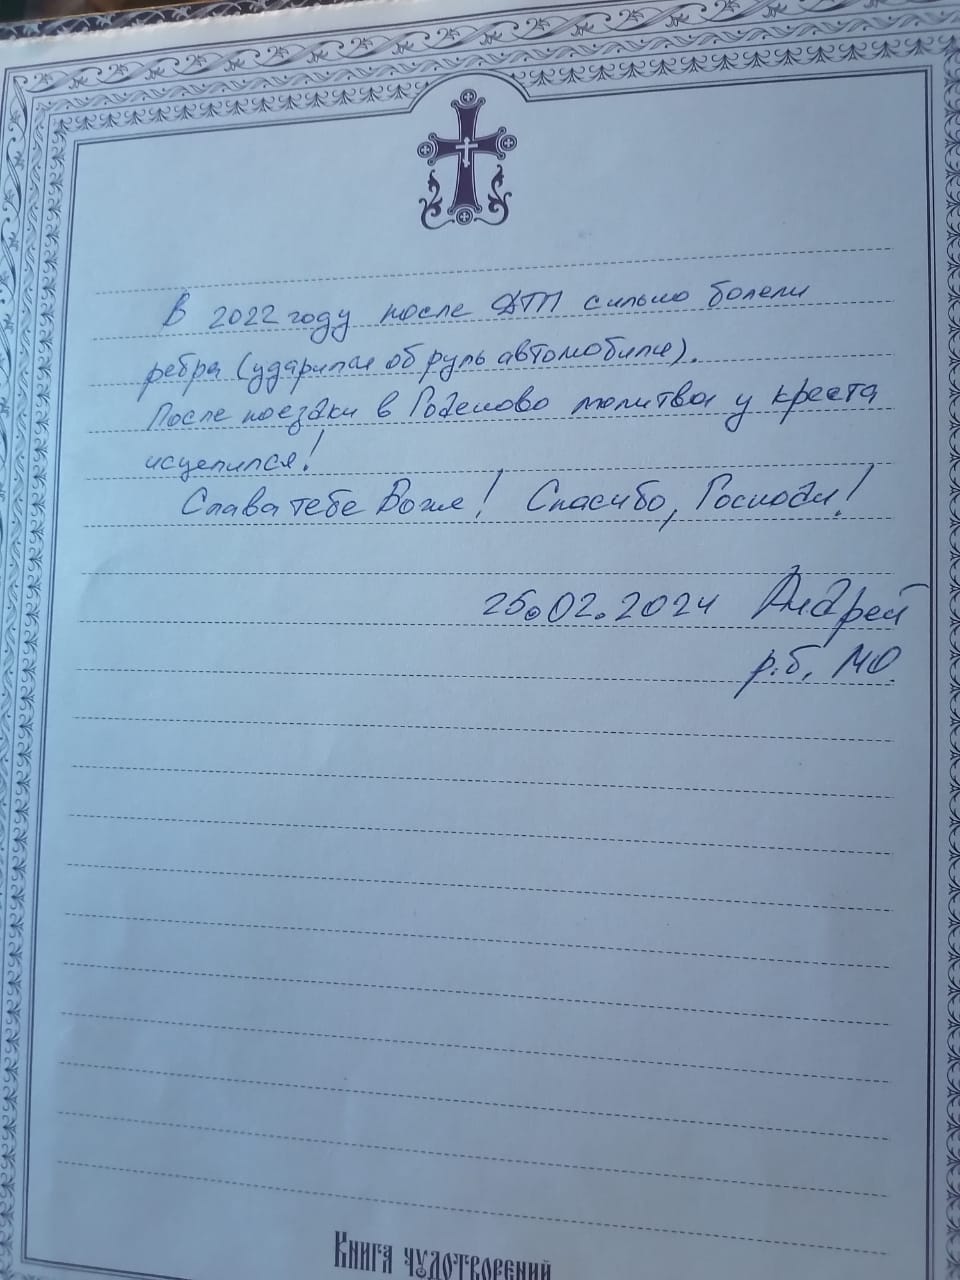 В 2022 году после ДТП сильно болели
ребра (ударился об руль автомобиля).
После поездки в Годеново молитвы у креста
исцелился!
Слава тебе Боже! Спасибо, Господи!
25.02.2024 Андрей
р.б. МО.
Книга чудотворений